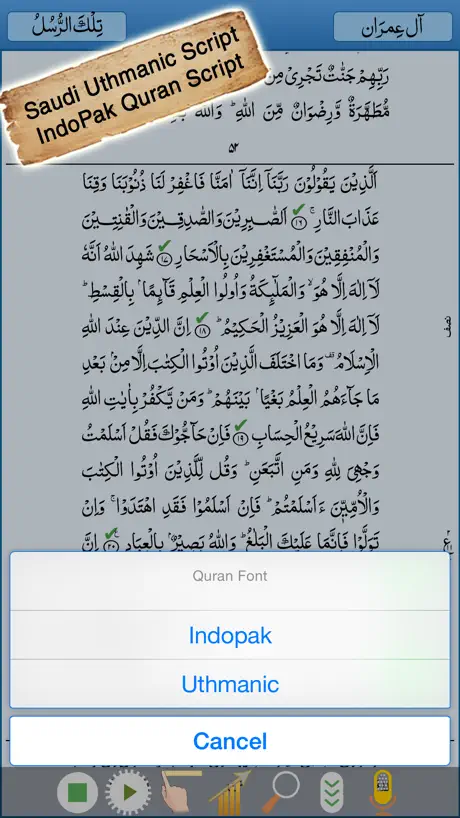 آل عِمرَان
تِلْكَ الرُّسُلُ
Saudi Uthmanic Script
IndoPak Quran Script
رَبِّهِمْ جَنّٰتٌ تَجْرِيْ مِنْ
مُّطَهَّرَةٌ وَّرِضْوَانٌ مِّنَ اللّٰهِ ؕ وَاللّٰهُ
۵۲
اَلَّذِيْنَ يَقُوْلُوْنَ رَبَّنَاۤ اِنَّنَاۤ اٰمَنَّا فَاغْفِرْ لَنَا ذُنُوْبَنَا وَقِنَا
عَذَابَ النَّارِ ۚ ﴿۱۶﴾ اَلصّٰبِرِيْنَ وَالصّٰدِقِيْنَ وَالْقٰنِتِيْنَ
وَالْمُنْفِقِيْنَ وَالْمُسْتَغْفِرِيْنَ بِالْاَسْحَارِ ﴿۱۷﴾ شَهِدَ اللّٰهُ اَنَّهٗ
لَاۤ اِلٰهَ اِلَّا هُوَ ۙ وَالْمَلٰٓئِكَةُ وَاُولُوا الْعِلْمِ قَآئِمًا ۢ بِالْقِسْطِ ؕ
لَاۤ اِلٰهَ اِلَّا هُوَ الْعَزِيْزُ الْحَكِيْمُ ؕ ﴿۱۸﴾ اِنَّ الدِّيْنَ عِنْدَ اللّٰهِ
نصف
الْاِسْلَامُ ۟ وَمَا اخْتَلَفَ الَّذِيْنَ اُوْتُوا الْكِتٰبَ اِلَّا مِنْۢ بَعْدِ
مَا جَآءَهُمُ الْعِلْمُ بَغْيًا ۢ بَيْنَهُمْ ؕ وَمَنْ يَّكْفُرْ بِاٰيٰتِ اللّٰهِ
فَاِنَّ اللّٰهَ سَرِيْعُ الْحِسَابِ ﴿۱۹﴾ فَاِنْ حَآجُّوْكَ فَقُلْ اَسْلَمْتُ
وَجْهِيَ لِلّٰهِ وَمَنِ اتَّبَعَنِ ؕ وَقُل لِّلَّذِيْنَ اُوْتُوا الْكِتٰبَ
وَالْاُمِّيّٖنَ ءَاَسْلَمْتُمْ ؕ فَاِنْ اَسْلَمُوْا فَقَدِ اهْتَدَوْا ۚ وَاِنْ
تَوَلَّوْا فَاِنَّمَا عَلَيْكَ الْبَلٰغُ ؕ وَاللّٰهُ بَصِيْرٌۢ بِالْعِبَادِ ﴿۲۰﴾ اِنَّ
Quran Font
Indopak
Uthmanic
Cancel